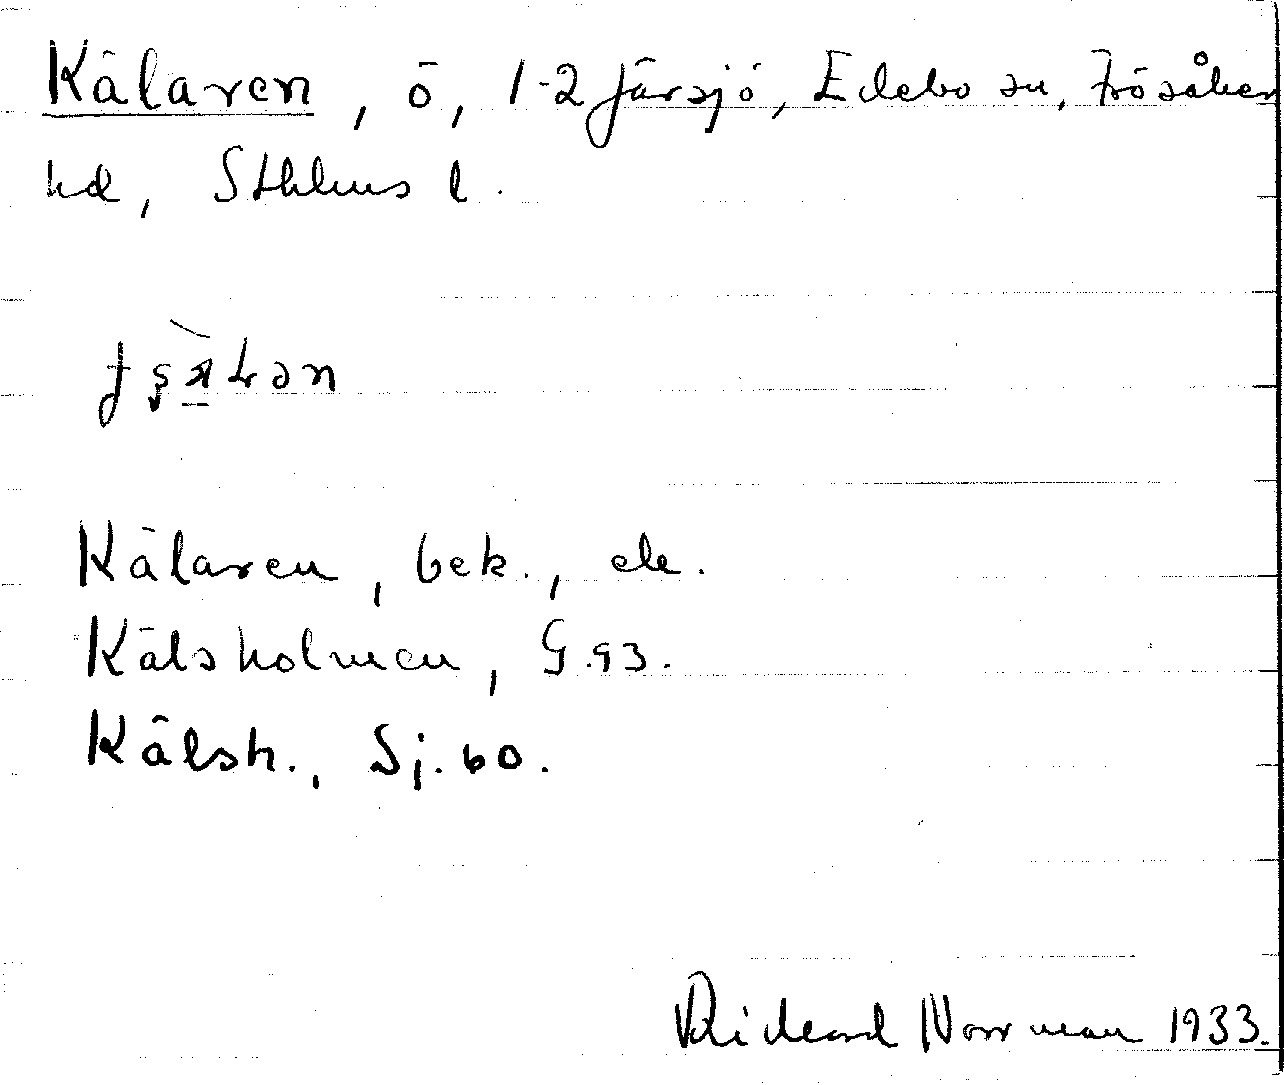 Kälaren, ö, 1-2 Järsjö, Edebo sn, Frösåker
hd, Sthlms l.
Kälaren, bek., ek.
Kälsholmen, G.93.
Kälsh., Sj. 60.
Rickard Norrman 1933.